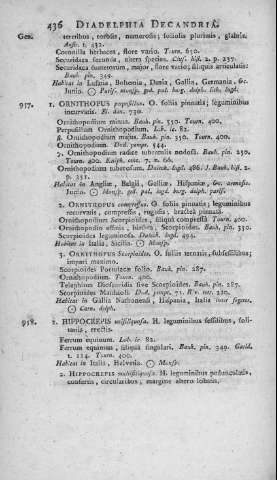 436 DIADELPHIA DECANDRIA.
Ger. teretibus, torosis, numerosis; foliolis plurimis, glabris.
Coronilla herbacea, flore vario. Tourn. 650.
Securidaca secunda, altera species. Clus. hist. 2. p. 237.
Securidaca dumetorum, major, flore vario; siliquis articulatis:
Bauh. pin. 349.
Habitat in Lusatia, Bohemia, Dania, Gallia, Germania, &c.
917. 1. ORNITHOPUS perpusillus. O. foliis pinnatis; leguminibus
incurvatis. Fl. dan. 730.
Ornithopodium minus. Bauh. pin. 350. Tourn. 400.
Perpusillum Ornithopodium. Lob. ic. 82.
β. Ornithopodium majus. Bauh. pin. 350. Tourn. 400.
Ornithopodium. Dod. pempt. 544.
γ. Ornithopodium radice tuberculis nodosa. Bauh. pin. 250.
Tourn. 400. Raiph. cent. 7. n. 66.
Ornithopodium tuberosum. Dalech. lugd. 486. J. Bauh. hist. 2.
p. 351.
Habitat in Angliæ, Belgii, Galliæ, Hispaniæ, &c. arenosis.
2. ORNITHOPUS compressus. O. foliis pinnatis; leguminibus
recurvatis, compressis, rugosis; bractea pinnata.
Ornithopodium Scorpioides, siliqua compressa Tourn. 400.
Ornithopodio affinis, hirsuta, Scorpioides. Bauh. pin. 350.
Scorpioides leguminosa. Dalech. lugd. 494.
Habitat in Italia, Sicilia. ☉ Monsp.
3. ORNITHOPUS Scorpioides. O. foliis ternatis, subsessilibus;
impari maximo.
Scorpioides Portulacæ folio. Bauh. pin. 287.
Ornithopodium. Tourn. 400.
Telephium Dioscoridis sive Scorpioides. Bauh. pin. 287.
Scorpioides Matthioli. Dod. pempt. 71. Riv. tet. 220.
Habitat in Gallia Narbonensi, Hispania, Italia inter segetes.
☉ Carn. delph.
918. 1. HIPPOCREPIS unisiliquosa. H. leguminibus sessilibus, solitariis,
erectis.
Ferrum equinum. Lob. ic. 82.
Ferrum equinum, siliqua singulari. Bauh. pin. 349. Garid.
t. 114. Tourn. 400.
Habitat in Italia, Helvetia. ☉ Monsp.
2. HIPPOCREPIS multisiliquosa. H. leguminibus pedunculatis,
confertis, circularibus, margine altero lobatis.